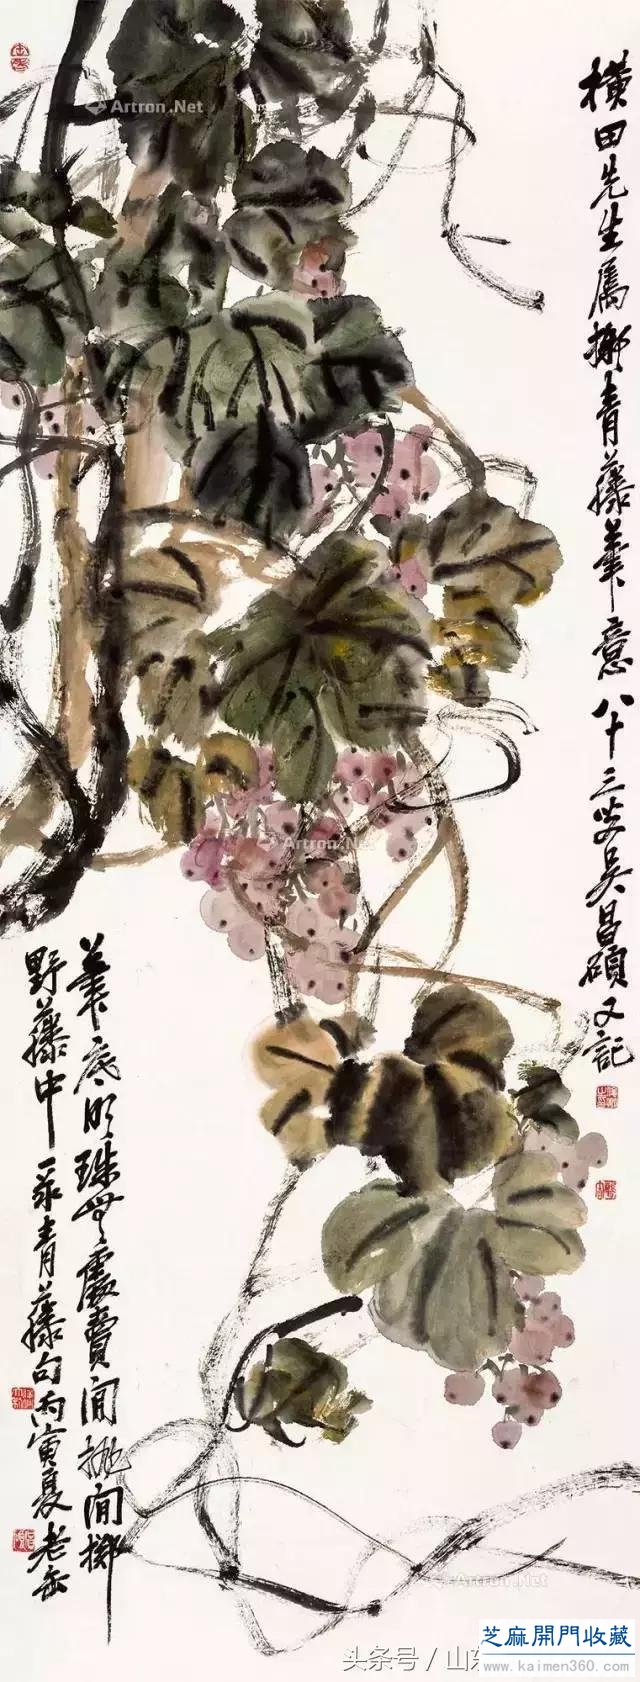 橫田先生屬擬青藤筆意八十三叟吳昌碩又記
筆底明珠無處賣閒拋閒擲
野藤中录青藤句丙寅夏老缶
Artron.Net
Artron.Net
Artron.Net
Artron.Net
头条号／山东
芝麻開門收藏
www.kaimen360.com